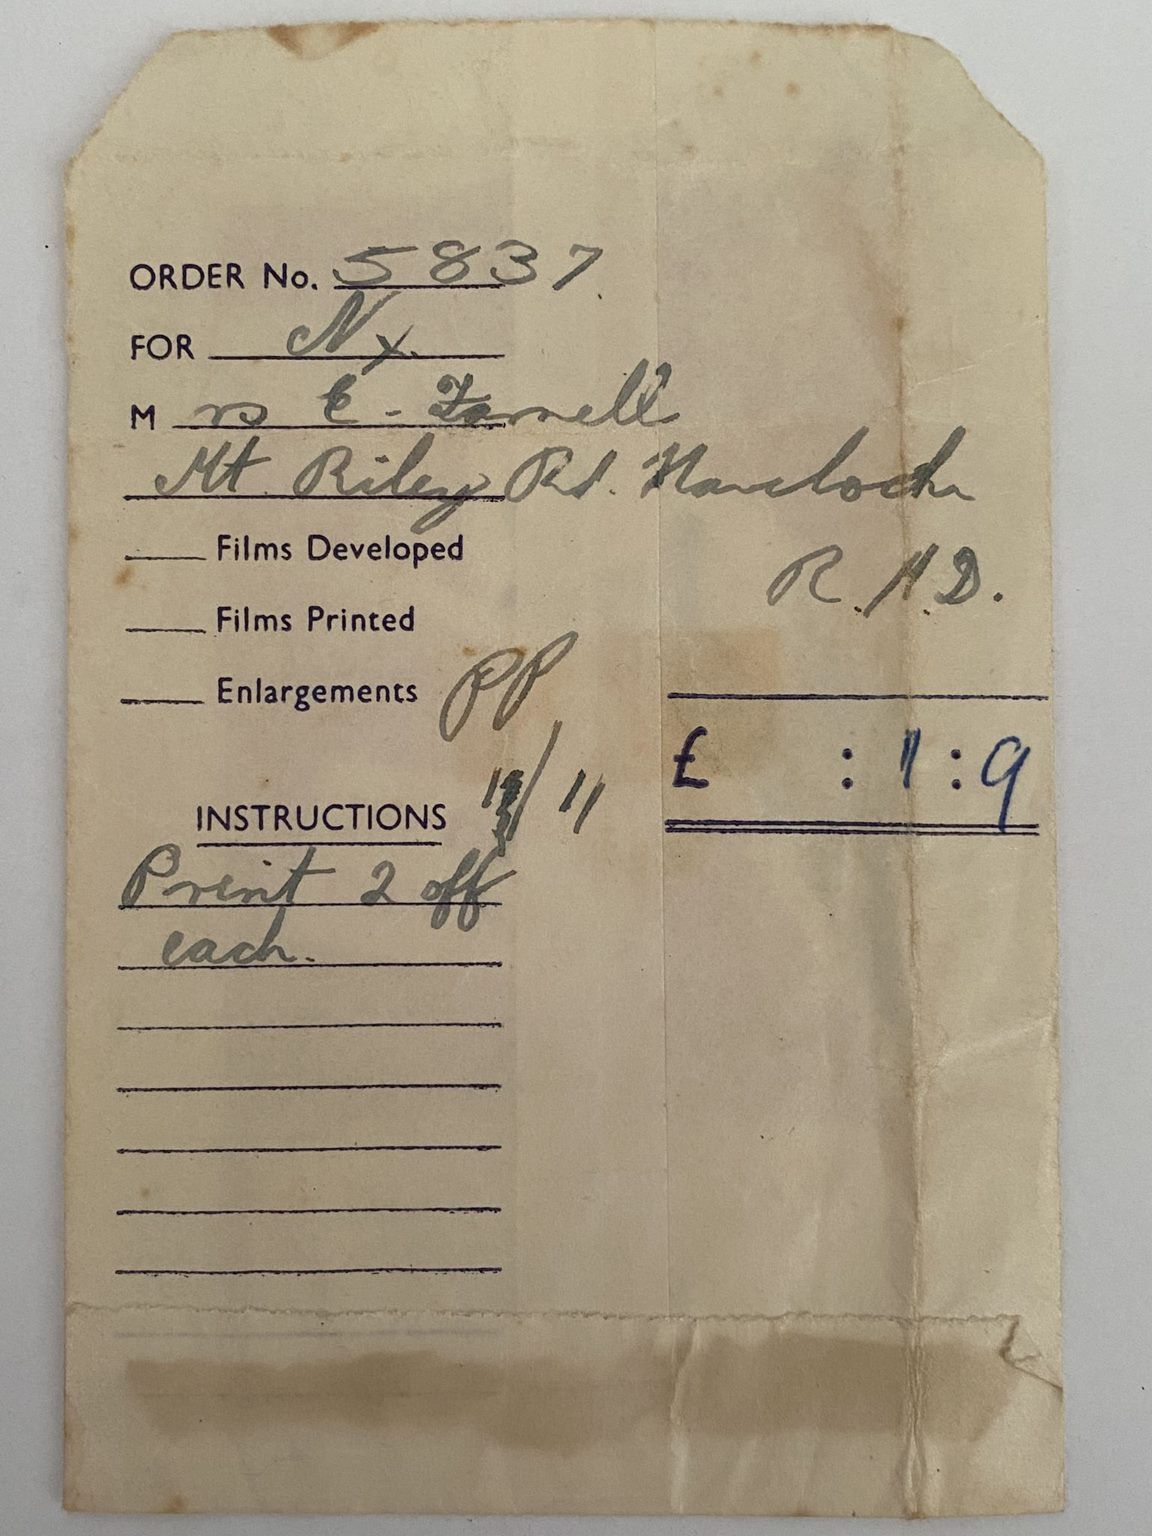 ORDER No. 5837
FOR Nx.
Mrs E. Farnell
Mt Riley Rd. Havelock
R.H.D.
Films Developed
Films Printed
Enlargements PP
£ : 1 : 9
/ 11
INSTRUCTIONS
Print 2 off
each.